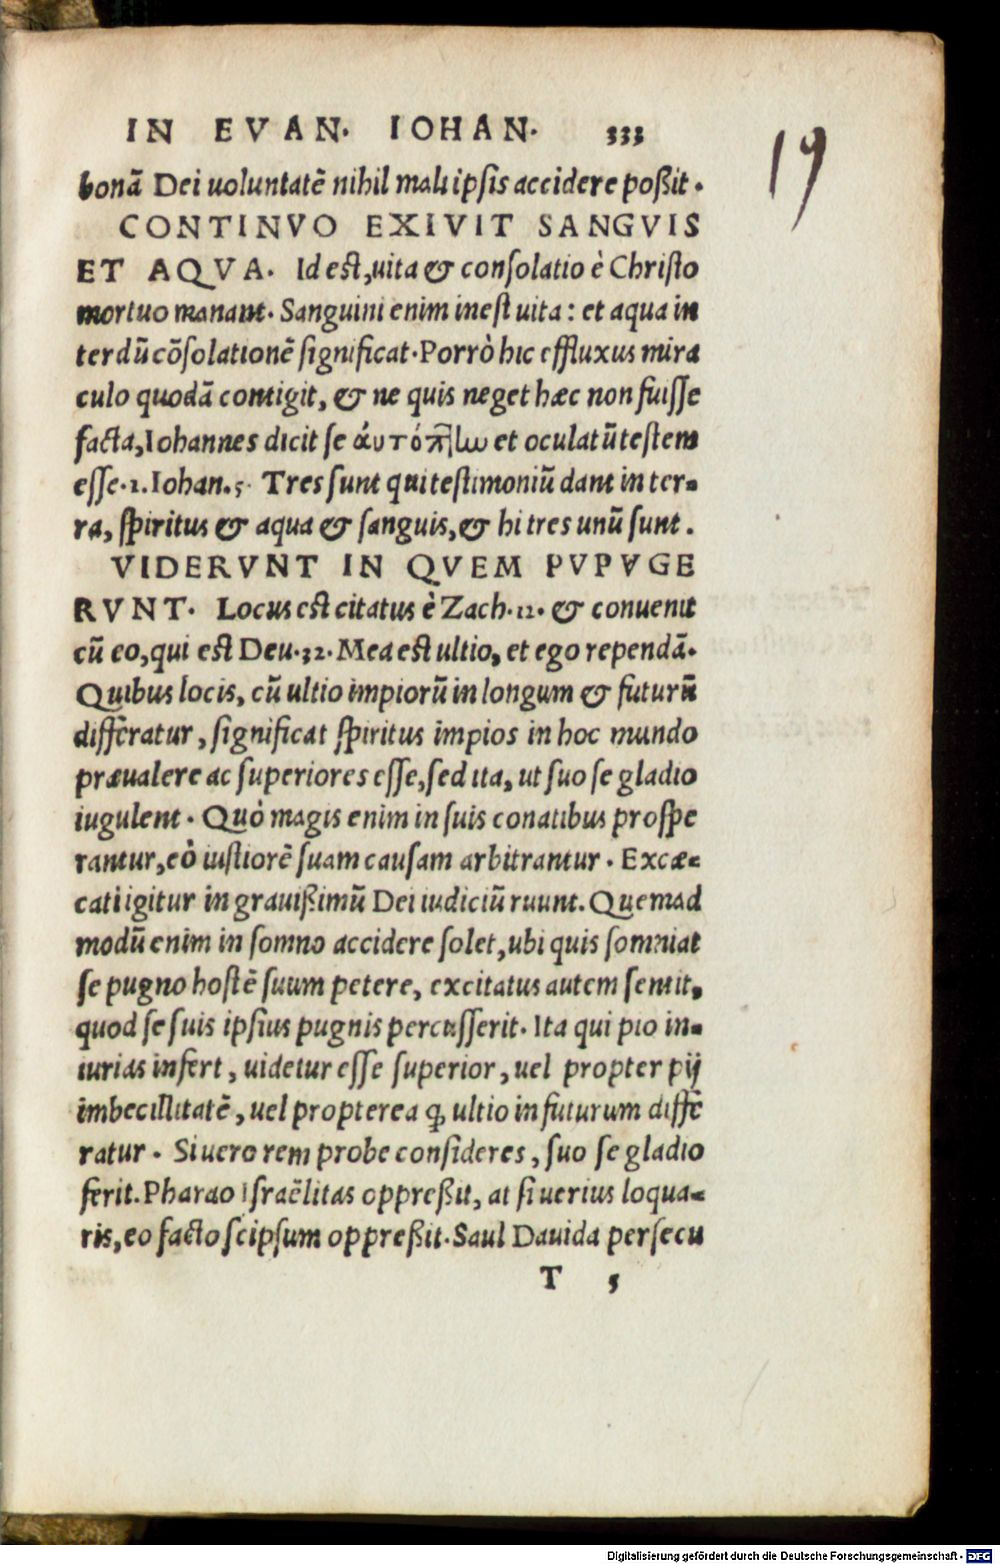 IN EVAN. IOHAN. 333
19
bonā Dei uoluntatē nihil mali ipsis accidere poßit.
CONTINVO EXIVIT SANGVIS
ET AQVA. Id est, uita & consolatio è Christo
mortuo manant. Sanguini enim inest uita: et aqua in
terdū cōsolationē significat. Porrò hic effluxus mira
culo quodā contigit, & ne quis neget hæc non fuisse
facta, Iohannes dicit se et oculatū testem
esse. 1. Iohan. 5. Tres sunt qui testimoniū dant in ter-
ra, spiritus & aqua & sanguis, & hi tres unū sunt.
VIDERVNT IN QVEM PVPVGE
RVNT. Locus est citatus è Zach. 12. & conuenit
cū eo, qui est Deu. 32. Mea est ultio, et ego rependā.
Quibus locis, cū ultio impiorū in longum & futurū
differatur, significat spiritus impios in hoc mundo
præualere ac superiores esse, sed ita, ut suo se gladio
iugulent. Quò magis enim in suis conatibus prospe
rantur, eò iustiorē suam causam arbitrantur. Excæ-
cati igitur in grauißimū Dei iudiciū ruunt. Quemad
modū enim in somno accidere solet, ubi quis somniat
se pugno hostē suum petere, excitatus autem sentit,
quod se suis ipsius pugnis percusserit. Ita qui pio in-
iurias infert, uidetur esse superior, uel propter pij
imbecillitatē, uel propterea ꝙ ultio in futurum diffe
ratur. Si uero rem probe consideres, suo se gladio
ferit. Pharao Israëlitas oppreßit, at si uerius loqua-
ris, eo facto seipsum oppreßit. Saul Dauida persecu
T 5
Digitalisierung gefördert durch die Deutsche Forschungsgemeinschaft - DFG